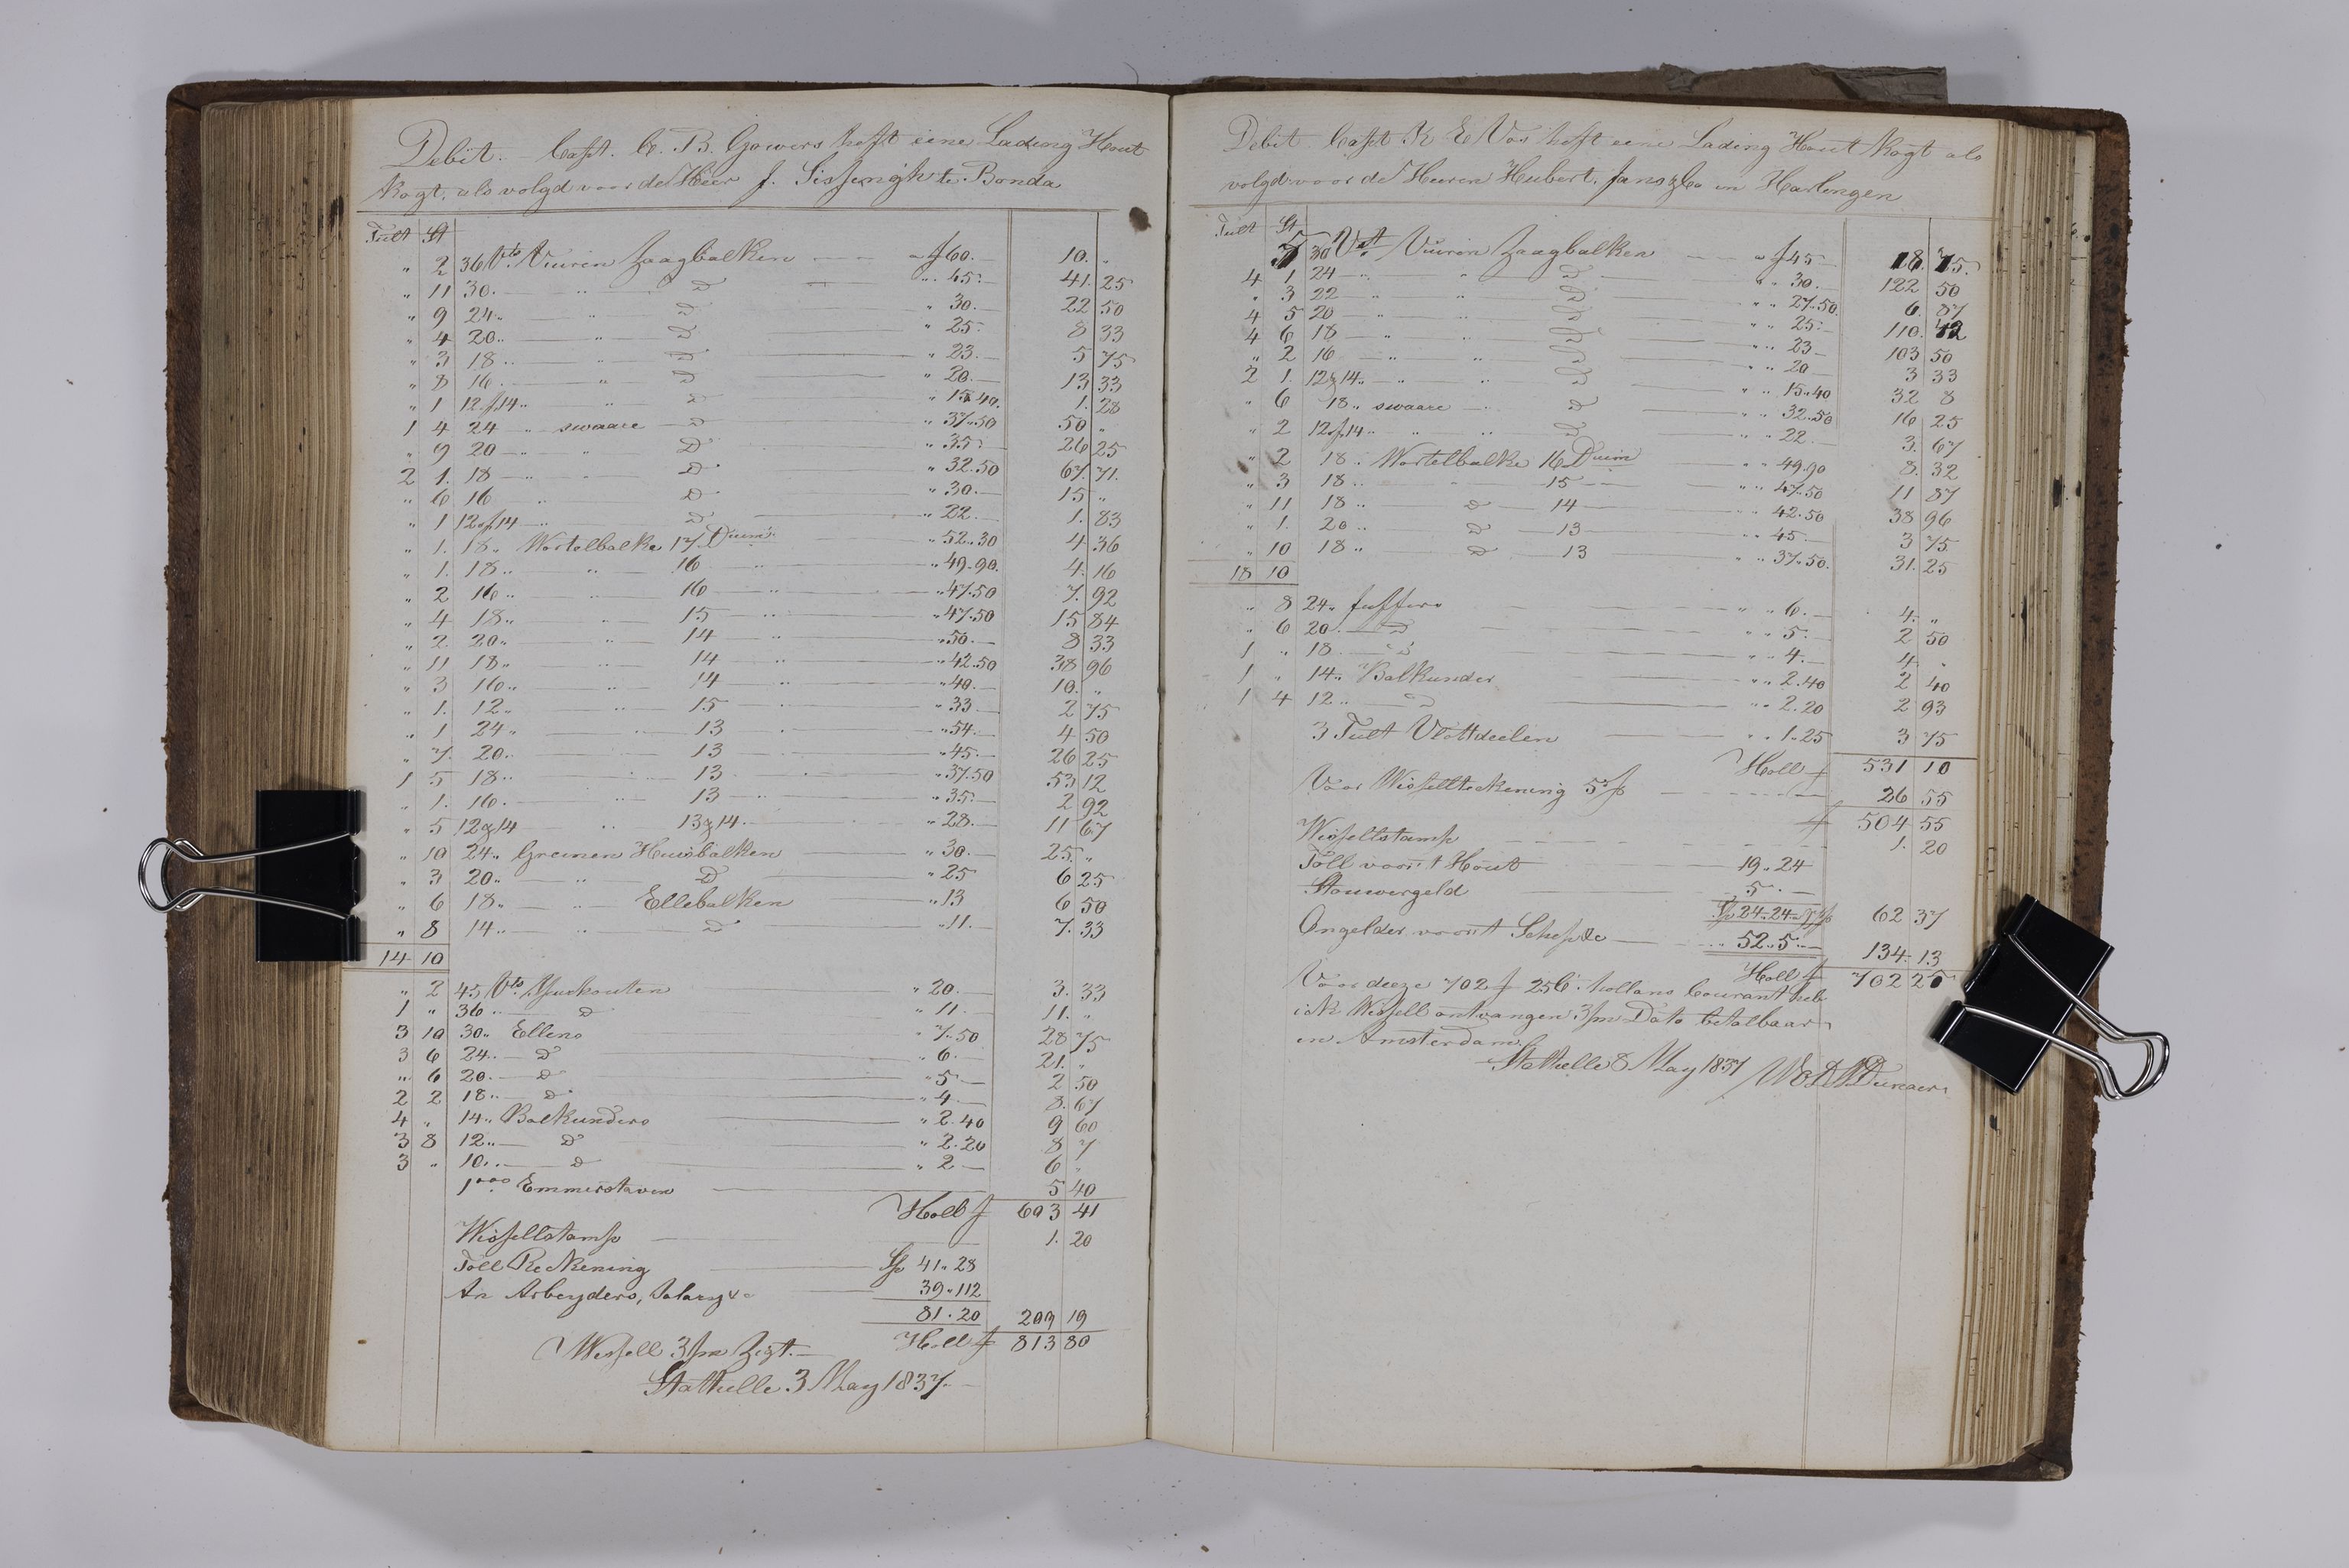 Debit. Capt. C. B. Gowers heft eine Lading Hout
kogt, als volgd voor de Heer J. Sissingh te Bonda
Tult St
" 2 36 Vts Vuiren Zaagbalken — " f 60.— 10. "
" 11 30. — " D — " 45.— 41.25
" 9 24 " " D — " 30. 22 50
" 4 20 " " D — " 25. 8 33
" 3 18 " " D — " 23.— 5 75
" 8 16 — " D — " 20.— 13 33
" 1 12 p 14 " " D — " 15.40. 1. 28
1 4 24 — " swaare — D — " 37.50 50 "
" 9 20 — " " D — " 35 26 25
2 1. 18 — " " D — " 32.50 67.71.
" 6 16 " D — " 30.— 15 "
" 1 12 p 14 — " D — " 22.— 1. 83
" 1. 18 " Wortelbalke 17 Duim " 52.30 4 36
" 1. 18 " " 16 " " 49.90. 4. 16
" 2 16 " " 16 — " " 47.50 7. 92
" 4 18 " " 15 — " " 47.50 15 84
" 2. 20 " " 14 — " " 50.— 8 33
" 11 18 " " 14 — " " 42.50 38 96
" 3 16 " " 14 — " " 40.— 10. "
" 1. 12 " " 15 — " 33 — 2 75
" 1 24 " " 13 " 54.— 4 50
" 7. 20 " " 13 " 45.— 26 25
1 5 18 " " 13 " 37.50 53 12
" 1. 16. — " 13 — " " 35.— 2 92
" 5 12 & 14 — " 13 & 14 — " 28.— 11 67
" 10 24 " Greinen Huisbalken — " 30.— 25. "
" 3 20 " — " D — " 25 6 25
" 6 18 " — " Ellebalken — " 13 6 50
" 8 14 " — " D — " 11.— 7. 33
14 10
" 2 45 Vts Juckouten — " 20.— 3. 33
1 " 36 " — D — " 11 — 11. "
3 10 30 " Ellens — " 7.50 28 75
3 6 24 " — D — " 6.— 21. "
" 6 20. — D — " 5 — 2 50
2 2 18 " — D — " 4 — 8. 67
4 " 14 " Balkunders — " 2.40 9 60
3 8 12 " — D — " 2.20 8 7
3 " 10 " — D — " 2 — 6 "
1000 Emmerstaven — 5 40
Holl f 603 41
Wissellstamp — 1. 20
Toll Reckening — Sp 41 " 28
An Arbeyders, Salary &c — 39 " 112
81 . 20 209 19
Wissell 3 pm Zigt.— Holl f 813 80
Stathelle 3 May 1837.
Debit Capt R E Vos heft eene Lading Hout kogt als
volgd voor de Heeren Hubert Jans & Co in Harlingen
Tult St
5 30 Vt Vuiren Zaagbalken — " f 45 — 18 75.
4 1 24 — " " D — " " 30. — 122 50
" 3 22 — " " D — " " 27.50. 6. 87
4 5 20 — " " D — " " 25.— 110. 42
4 6 18 — " " D — " " 23 — 103 50
" 2 16 — " " D — " " 20 — 3 33
2 1. 12 & 14 " — " " D — " " 15.40 32 8
" 6 18 " swaare — " D — " " 32.50 16 25
" 2 12 p 14 " " " D — " " 22.— 3. 67
" 2 18 " Wortelbalke 16 Duim " " 49.90 8. 32
" 3 18 " — " 15 — " " 47.50 11 87
" 11 18 " D 14 — " " 42.50 38 96
" 1. 20 " D — 13 — " " 45.— 3 75
" 10 18 " D 13 — " " 37.50. 31. 25
18 10
" 8 24 " Juffers — " " 6.— 4. "
" 6 20. — D — " " 5.— 2 50
1 " 18. — D — " " 4.— 4 "
1 " 14 " Balkunder — " " 2.40 2 40
1 4 12 " — D — " " 2.20 2 93
3 Tult Vlottdeelen — " " 1.25 3 75
Holl f 531 10
Voor Wisselltekening 5 p — 26 55
f 504 55
Wissellstamp — 1. 20
Toll voor't Hout — 19 " 24
Stouwergeld — 5 " —
Sp 24 " 24 62 37
Ongelder voor't Schip &c — " 52 " 5 " — 134 13
Holl f 702 25
Voor deeze 702 f 25 C. hollans Courant heb
ick Wissell ontvangen 3 pm Dato betalbaar
in Amsterdam.
Stathelle 8 May 1837